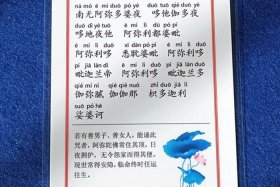 nā mó ē mí duō pó yè duō tuō qié duō yè
南无阿弥多婆夜 哆他伽多夜
duō dì yè tuō ē mí lì dū pó pí
哆地夜他 阿弥利都婆毗
ē mí lì duō xī dān pó pí ē mí lì duō
阿弥利哆 悉耽婆毗 阿弥唎哆
pí jiā lán dì ē mí lì duō pí jiā lán duō
毗迦兰帝 阿弥唎哆 毗迦兰多
qié mí nì qié qié nà zhǐ duō jiā lì
伽弥腻 伽伽那 枳多迦利
suō pó hē
娑婆诃
若有善男子、善女人，能诵此
咒者，阿弥陀佛常住其顶，日
夜拥护，无令怨家而得其便，
现世常得安隐，临命终时任运
往生。